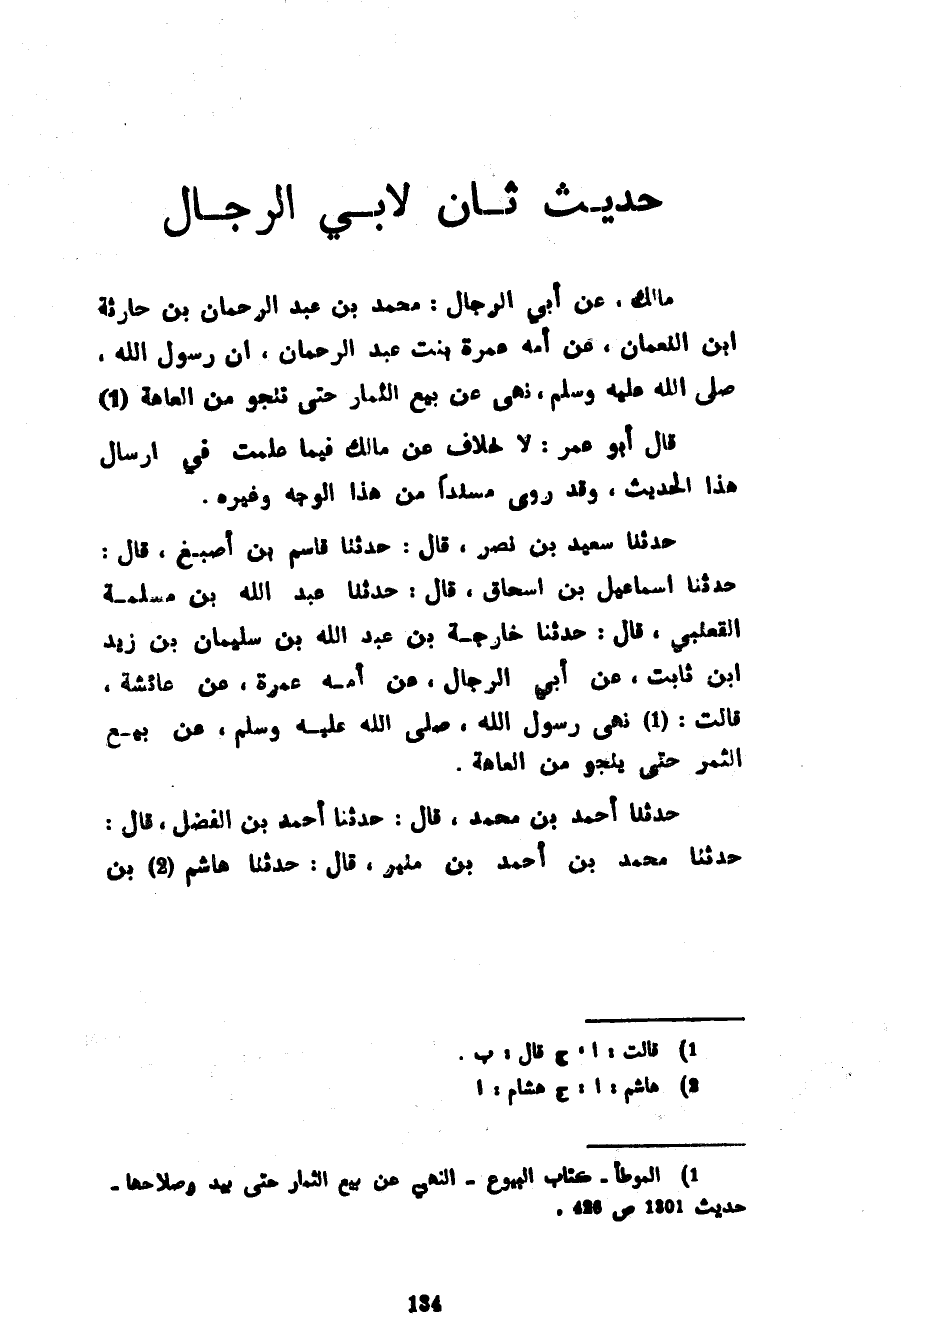 حديث ثان لابي الرجال
مالك ، عن أبي الرجال : محمد بن عبد الرحمان بن حارثة
ابن النعمان ، عن أمه عمرة بنت عبد الرحمان ، ان رسول الله ،
صلى الله عليه وسلم ، نهى عن بيع الثمار حتى تنجو من العاهة (1)
قال أبو عمر : لا خلاف عن مالك فيما علمت في ارسال
هذا الحديث ، وقد روي مسنداً من هذا الوجه وغيره .
حدثنا سعيد بن نصر ، قال : حدثنا قاسم بن أصبغ ، قال :
حدثنا اسماعيل بن اسحاق ، قال : حدثنا عبد الله بن مسلمة
القعنبي ، قال : حدثنا خارجة بن عبد الله بن سليمان بن زيد
ابن ثابت ، عن أبي الرجال ، عن أمه عمرة ، عن عائشة ،
قالت : (1) نهى رسول الله ، صلى الله عليه وسلم ، عن بيع
الثمر حتى ينجو من العاهة .
حدثنا أحمد بن محمد ، قال : حدثنا أحمد بن الفضل ، قال :
حدثنا محمد بن أحمد بن منير ، قال : حدثنا هاشم (2) بن
1) قالت : ا ، ج قال : ب .
2) هاشم : ا : ج هشام : ا
1) الموطأ ـ كتاب البيوع ـ النهي عن بيع الثمار حتى يبد وصلاحها ـ
حديث 1301 ص 426 .
134